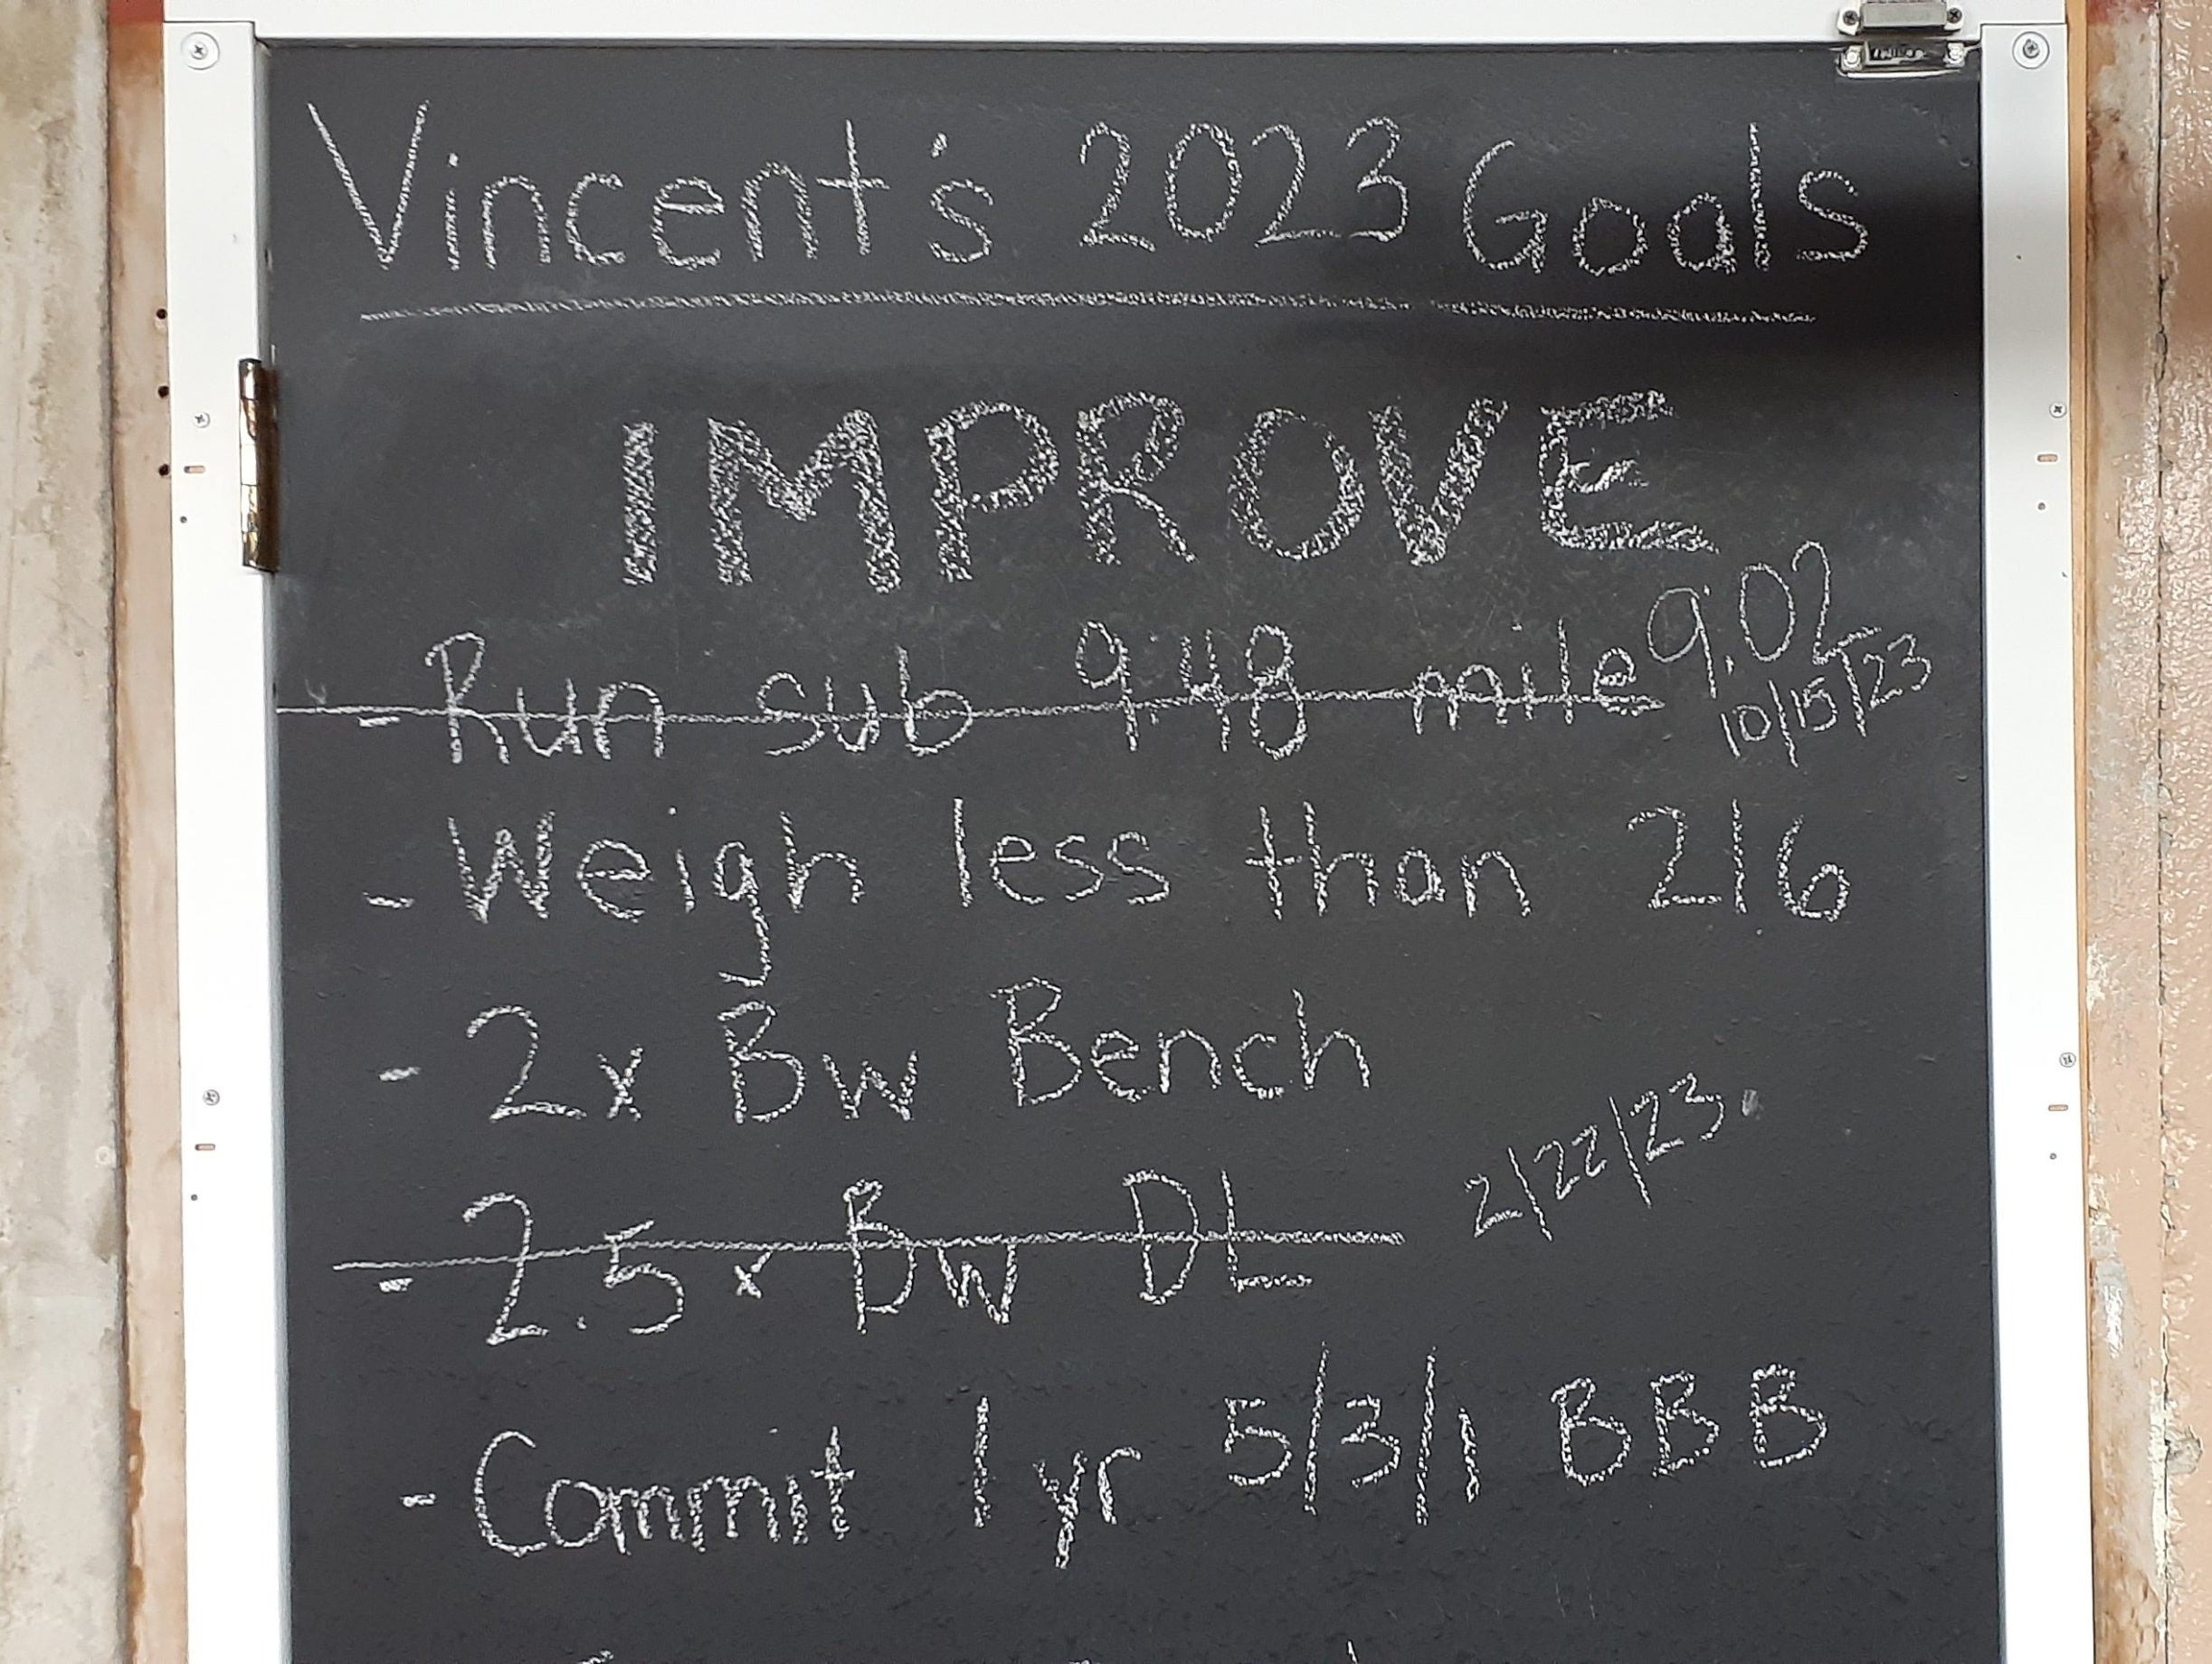 Vincent's 2023 Goals
IMPROVE
- Run sub 9:48 mile 9:02
10/15/23
- Weigh less than 216
- 2x Bw Bench
2/22/23
- 2.5x Bw DL
- Commit 1 yr 5/3/1 BBB